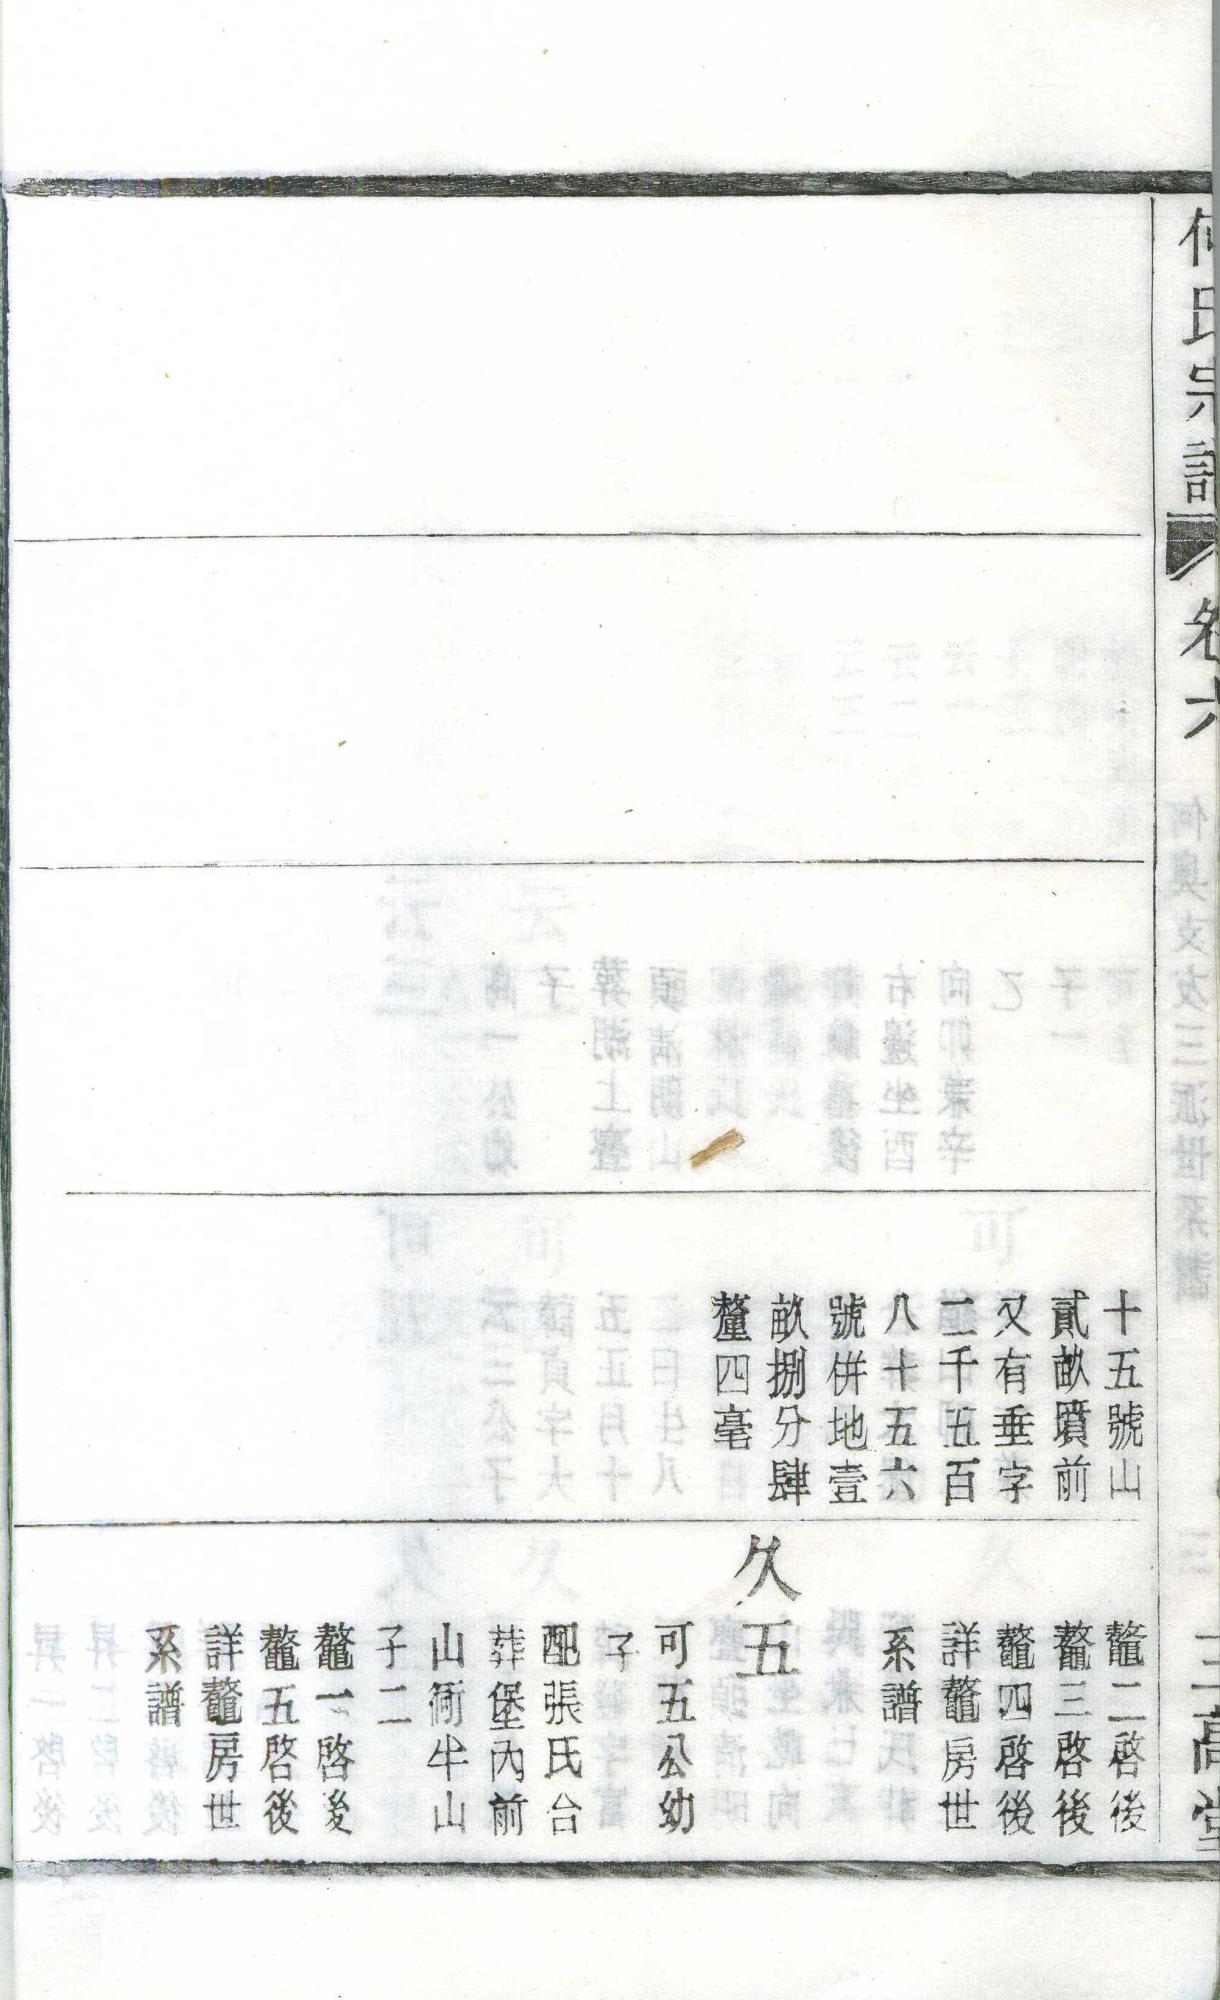 何氏宗譜
卷六
三高堂
十五號山
貳畝墳前
又有垂字
二千五百
八十五六
號併地壹
畝捌分肆
釐四毫
鼇二啓後
鼇三啓後
鼇四啓後
詳鼇房世
系譜
久五
可五公幼
子
配張氏合
葬堡內前
山衕牛山
子二
鼇一啓後
鼇五啓後
詳鼇房世
系譜